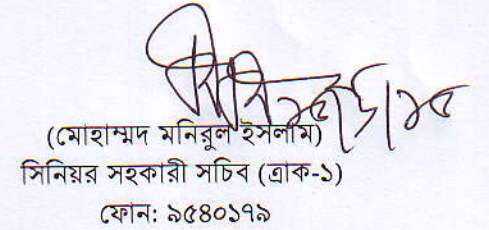 (মোহাম্মদ মনিরুল ইসলাম)
সিনিয়র সহকারী সচিব (ত্রাক-১)
ফোন: ৯৫৪০১৭৯